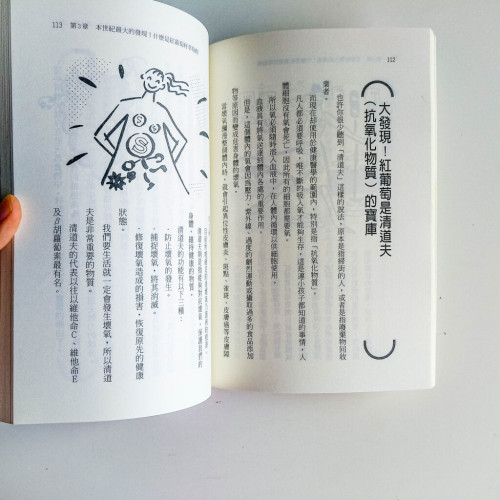 112
大發現!紅葡萄是清道夫
(抗氧化物質)的寶庫
也許你很少聽到「清道夫」這樣的說法,原本是指掃街的人,或者是指廢棄物回收
業者。
而現在卻使用於健康醫學的範圍內,特別是指「抗氧化物質」。
凡人都必須要呼吸,唯不斷的吸入氧才能夠生存,這是連小孩子都知道的事情,人
體細胞沒有氧會死亡,因此所有的細胞都需要氧。
所以氧必須隨時溶入血液中,在人體內循環以供細胞使用。
血液具有將氧送達到體內各處的重要作用。
但是,這個體內的氧會因為壓力、紫外線、過度的劇烈運動或攝取過多的食品添加
物等原因而變成是害身體的壞氧。
當壞氧攝滿整個體內時,就會引起異位性皮膚炎、斑點、雀斑、皮膚癌等皮膚障
113 第3章 本世紀最大的發現!什麼是紅葡萄
身體,維持健康的物質。
清道夫的功能有以下三種:
·防止壞氧的發生。
·捕捉壞氧,將其消滅。
·修復壞氧造成的損害,恢復原先的健康
狀態。
我們要生活就一定會發生壞氧,所以清道
夫是非常重要的物質。
清道夫的代表以往以維他命C、維他命E
及β胡蘿蔔素最有名。